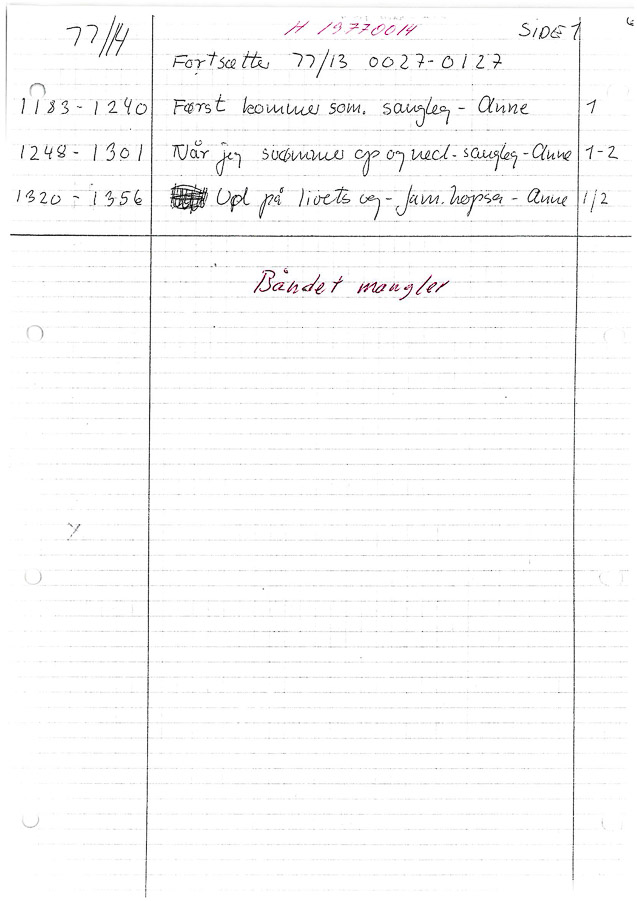 H 19770014
77/14 SIDE 1
Fortsætter 77/13 0027-0127
1183-1240 Først kommer som. sangleg - Anne 1
1248-1301 Når jeg svømmer op og ned - sangleg - Anne 1-2
1320-1356 Upl på livets vej - fam. hopsa - Anne 1/2
Båndet mangler